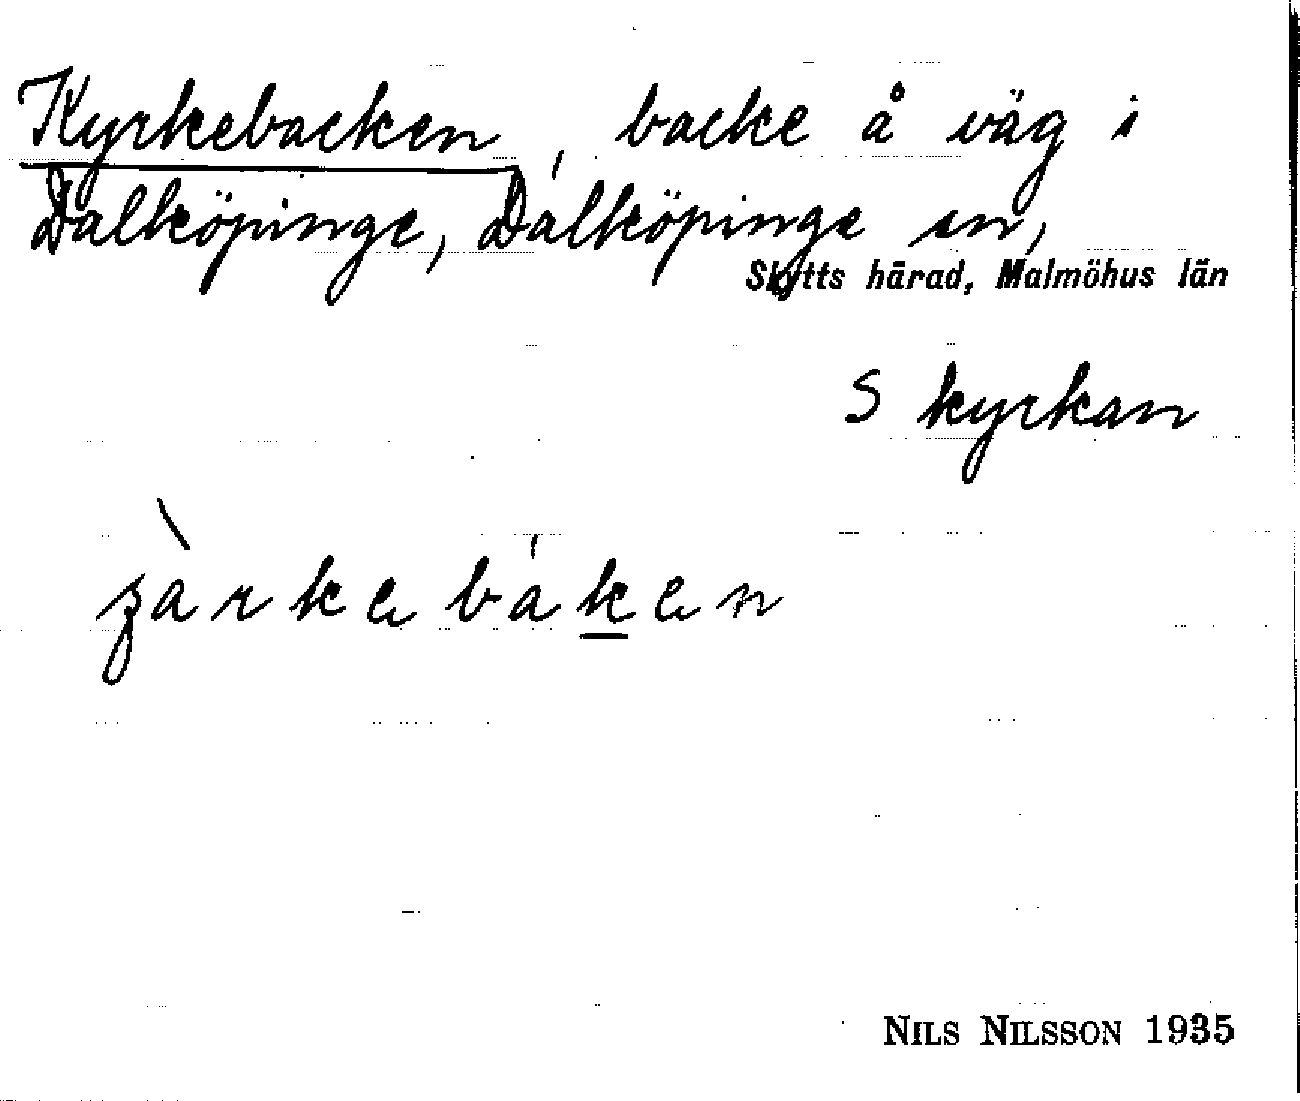 Kyrkebacken, backe å väg i
Dalköpinge, Dalköpinge sn,
Skytts härad, Malmöhus län
S kyrkan
Nils Nilsson 1935